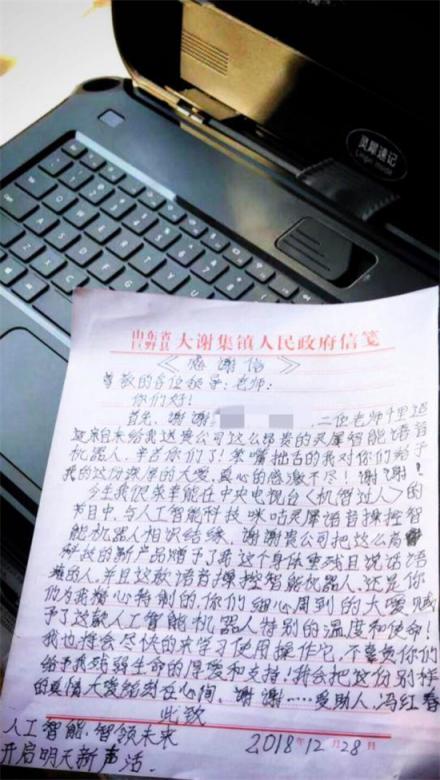 灵犀速记
山东省
巨野县
大谢集镇人民政府信笺
《感谢信》
尊敬的各位领导;老师:
你们好!
首先,谢谢 ,二位老师千里迢
迢亲自来给我送贵公司这么昂贵的灵犀智能语音
机器人,辛苦你们了!笨嘴拙舌的我对你们给予
我的这份深厚的大爱,真心的感激不尽!谢谢!
今生我很荣幸能在中央电视台《机智过人》的
节目中,与人工智能科技咪咕灵犀语音操控智
能机器人相识结缘,谢谢贵公司把这么高
科技的新产品赠予了我这个身体重残且说话语
的人,并且这款语音操控智能机器人,还是你
们为我精心特制的,你们细心周到的大爱赋
予了这款人工智能机器人特别的温度和使命!
我也将会尽快的来学习使用操作它,不辜负你们
给予我残弱生命的厚爱和支持!我会把这份别样
的真情大爱铭刻在心间,谢谢……受助人,冯红春
此致
人工智能,智领未来
开启明天新声活.
2018年12月28日